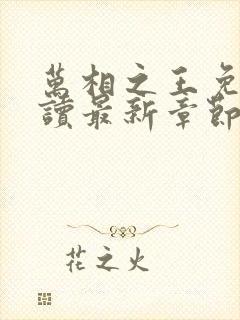 萬相之王免
讀最新章節
花之火